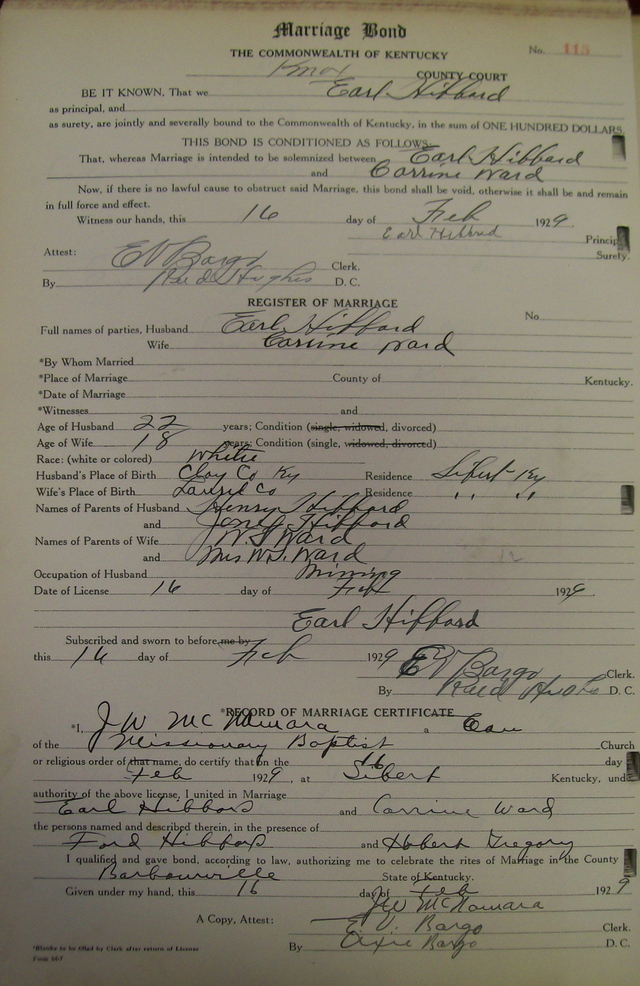 Marriage Bond
No. 115
THE COMMONWEALTH OF KENTUCKY
Knox COUNTY COURT
BE IT KNOWN, That we Earl Hibbard
as principal, and
as surety, are jointly and severally bound to the Commonwealth of Kentucky, in the sum of ONE HUNDRED DOLLARS.
THIS BOND IS CONDITIONED AS FOLLOWS:
That, whereas Marriage is intended to be solemnized between Earl Hibbard
and Corrine Ward
Now, if there is no lawful cause to obstruct said Marriage, this bond shall be void, otherwise it shall be and remain
in full force and effect.
Witness our hands, this 16 day of Feb 1929
Earl Hibbard Princip
Surety.
Attest: E V Bargo Clerk.
By Reed Hughes D. C.
REGISTER OF MARRIAGE
No.
Full names of parties, Husband Earl Hibbard
Wife Corrine Ward
*By Whom Married
*Place of Marriage County of Kentucky.
*Date of Marriage
*Witnesses and
Age of Husband 22 years; Condition (single, widowed, divorced)
Age of Wife 18 years; Condition (single, widowed, divorced)
Race: (white or colored) White
Husband's Place of Birth Clay Co Ky Residence Sibert Ky
Wife's Place of Birth Laurel Co Residence " "
Names of Parents of Husband Henry Hibbard
and Hibbard
Names of Parents of Wife W.S. Ward
and Mrs W.S. Ward
Occupation of Husband Mining
Date of License 16 day of Feb 1929.
Earl Hibbard
Subscribed and sworn to before me by
this 16 day of Feb 1929 E V Bargo Clerk.
By Reed Hughes D. C.
*RECORD OF MARRIAGE CERTIFICATE
*I, J W McNamara a
of the Missionary Baptist Church
or religious order of that name, do certify that on the 16 day
Feb 1929, at Sibert Kentucky, unde
authority of the above license, I united in Marriage
Earl Hibbard and Corrine Ward
the persons named and described therein, in the presence of
Ford Hibbard and Hobert Gregory
I qualified and gave bond, according to law, authorizing me to celebrate the rites of Marriage in the County
Barbourville State of Kentucky.
Given under my hand, this 16 day of Feb 1929
JW McNamara
A Copy, Attest: E. V. Bargo Clerk.
By Bargo D. C.
*Blanks to be filled by Clerk after return of License